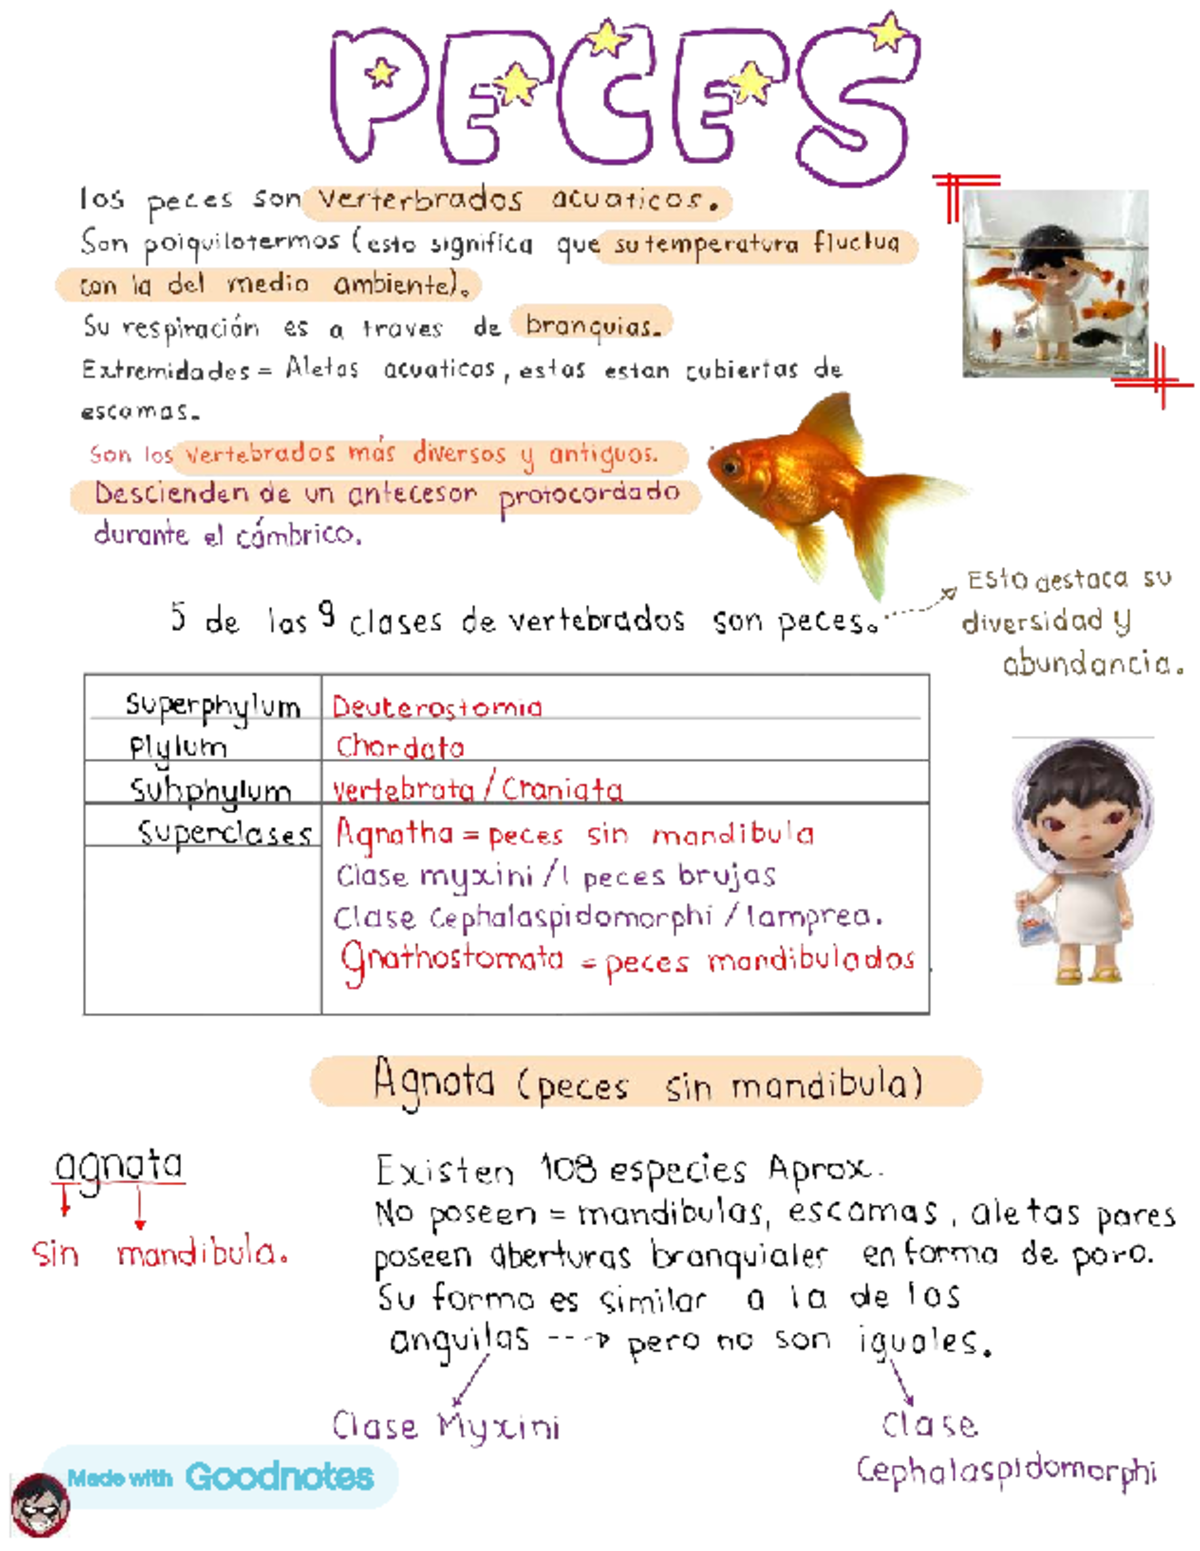 PECES
los peces son verterbrados acuaticos.
Son poiquilotermos (esto significa que su temperatura fluctua
con la del medio ambiente).
Su respiración es a traves de branquias.
Extremidades = Aletas acuaticas, estas estan cubiertas de
escamas.
Son los vertebrados más diversos y antiguos.
Descienden de un antecesor protocordado
durante el cámbrico.
5 de las 9 clases de vertebrados son peces.
Esto destaca su
diversidad y
abundancia.
Superphylum Deuterostomia
Plylum Chordata
Subphylum vertebrata / Craniata
Superclases Agnatha = peces sin mandibula
Clase myxini / l peces brujas
Clase Cephalaspidomorphi / lamprea.
Gnathostomata = peces mandibulados
Agnata (peces sin mandibula)
agnata
sin mandibula.
Existen 108 especies Aprox.
No poseen = mandibulas, escamas, aletas pares
poseen aberturas branquiales en forma de poro.
Su forma es similar a la de las
anguilas ---> pero no son iguales.
Clase Myxini
Clase
Cephalaspidomorphi
Made with Goodnotes